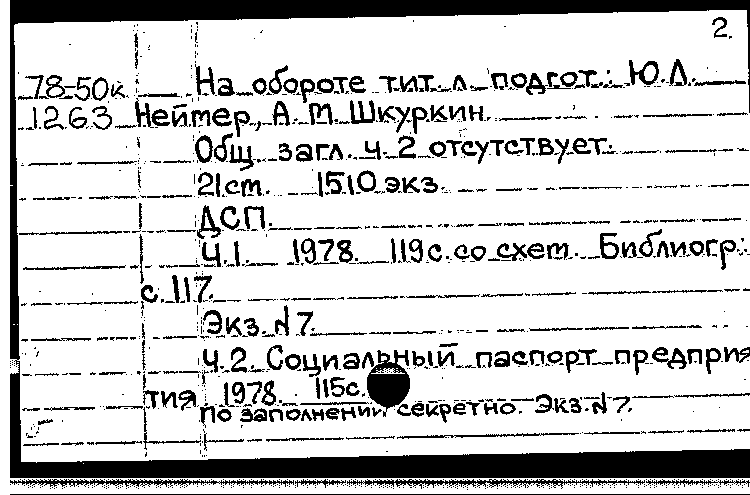 2.
78-50к На обороте тит. л. подгот.: Ю.Л.
1263 Неймер, А. М. Шкуркин.
Общ. загл. ч. 2 отсутствует.
21 cm. 1510 экз.
ДСП.
Ч.1. 1978. 119 с. со схем. Библиогр.:
с. 117.
Экз. N 7.
Ч. 2. Социальный паспорт предприя
тия 1978. 115 с.
По заполнении секретно. Экз. N 7.